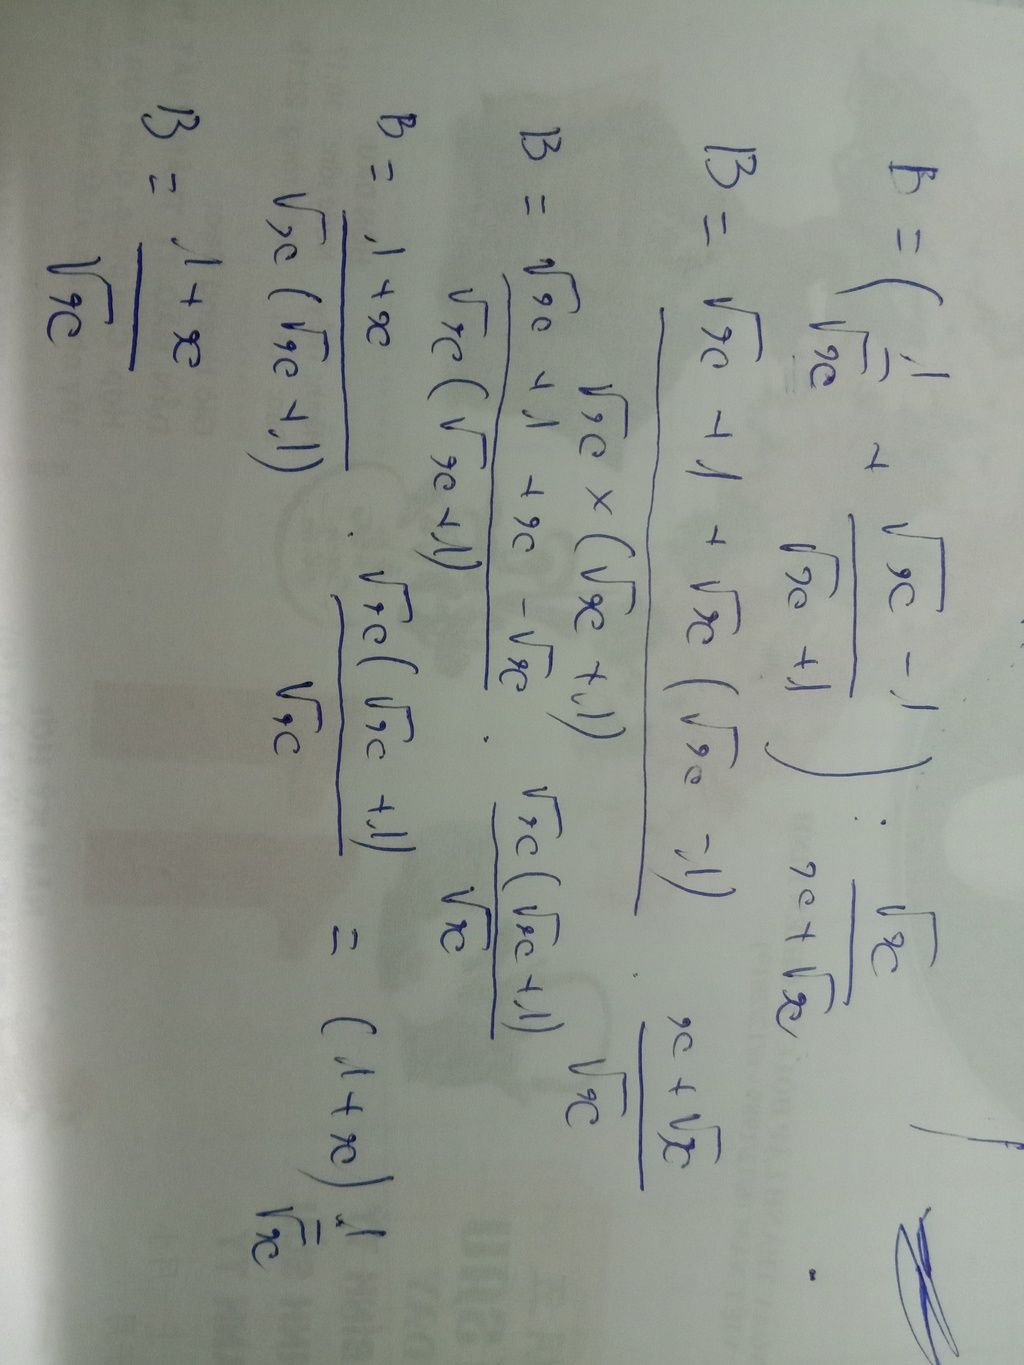 B = ( 1/√x + (√x - 1)/(√x + 1) ) : √x/(x + √x)
B = (√x + 1 + √x (√x - 1))/(√x × (√x + 1)) . (x + √x)/√x
B = (√x + 1 + x - √x)/(√x (√x + 1)) . (√x (√x + 1))/√x
B = (1 + x)/(√x (√x + 1)) . (√x (√x + 1))/√x = (1 + x) 1/√x
B = (1 + x)/√x